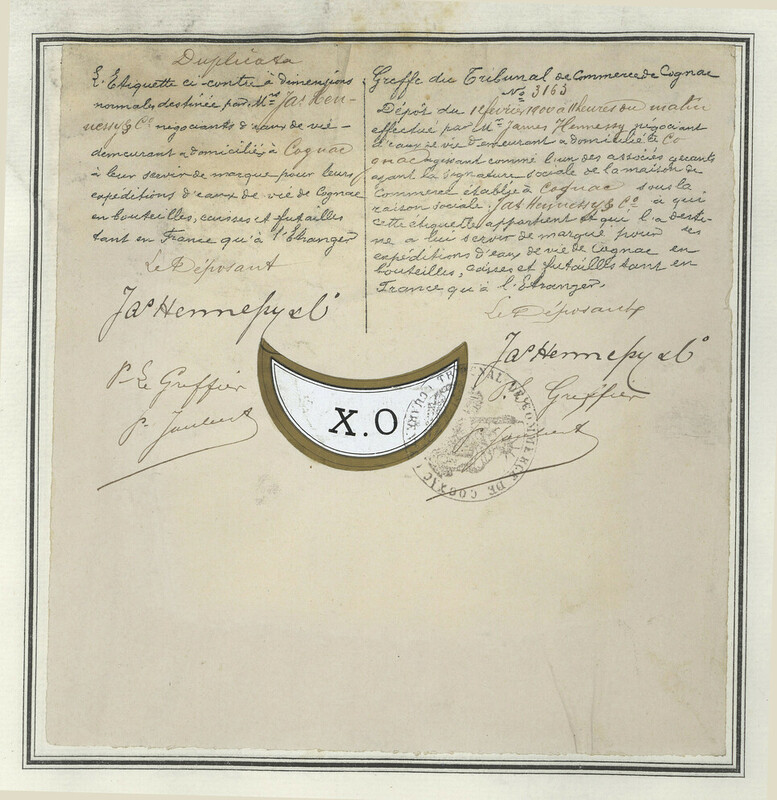 Duplicata
L'Etiquette ci-contre à dimensions
normales destinée par Mrs Jas Hen-
nessy & Co négociants d'eaux de vie –
demeurant & domiciliés à Cognac
à leur servir de marque pour leurs
expéditions d'eaux de vie de Cognac
en bouteilles, caisses et futailles
tant en France qu'à l'Etranger
Le Déposant
Jas Hennessy & Co
P. Le Greffier
P. Joubert
Greffe du Tribunal de Commerce de Cognac
No 3163
Dépôt du 1 février 1900 à 11 heures du matin
effectué par Mr James Hennessy négociant
d'eaux de vie demeurant & domicilié à Co
gnac agissant comme l'un des associés gérants
ayant la signature sociale de la maison de
Commerce établie à Cognac sous la
raison sociale: Jas Hennessy & Co à qui
cette étiquette appartient et qui l'a desti-
né a lui servir de marque pour ses
expéditions d'eaux de vie de Cognac en
bouteilles, caisses et futailles tant en
France qu'à l'Etranger.
Le Déposant
Jas Hennessy & Co
P. Le Greffier
X.O
TRIBUNAL DE COMMERCE DE COGNAC